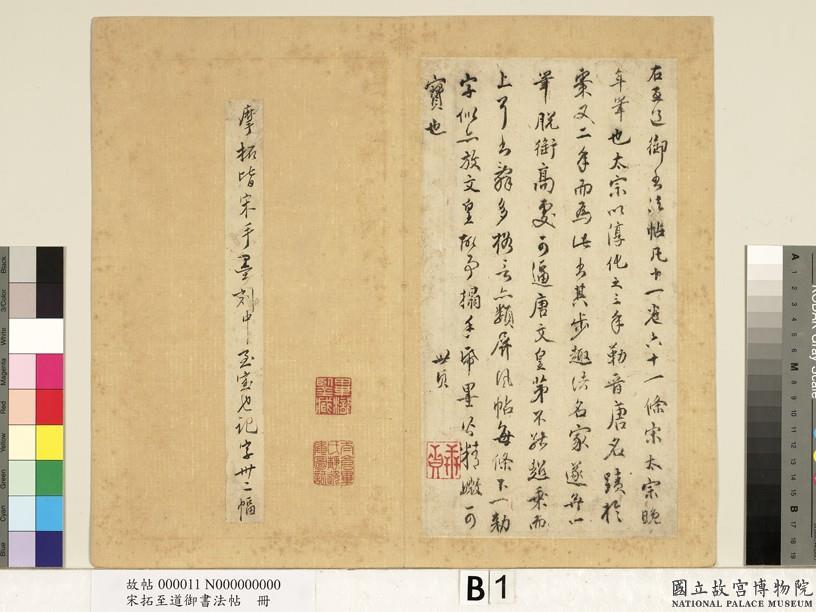 右至道御書法帖凡十一卷六十一條宋太宗晚
年筆也太宗以淳化之三年勒晉唐名蹟於
棗又二年而為此書其步趣諸名家遂無一
筆脫銜高處可逼唐文皇第不能超乘而
上耳書辭多格言亦類屏風帖每條下一勅
字似亦放文皇故事搨手紙墨公精緻可
寶也
世貞
摩拓皆宋手墨刻中至寶也記字卅二幅
故帖 000011 N000000000
宋拓至道御書法帖 冊
B 1
國立故宮博物院
NATIONAL PALACE MUSEUM
Black
3/Color
White
Magenta
Red
Yellow
Green
Cyan
Blue
A 1 2 3 4 5 6 M 8 9 10 11 12 13 14 15 B 17 18 19